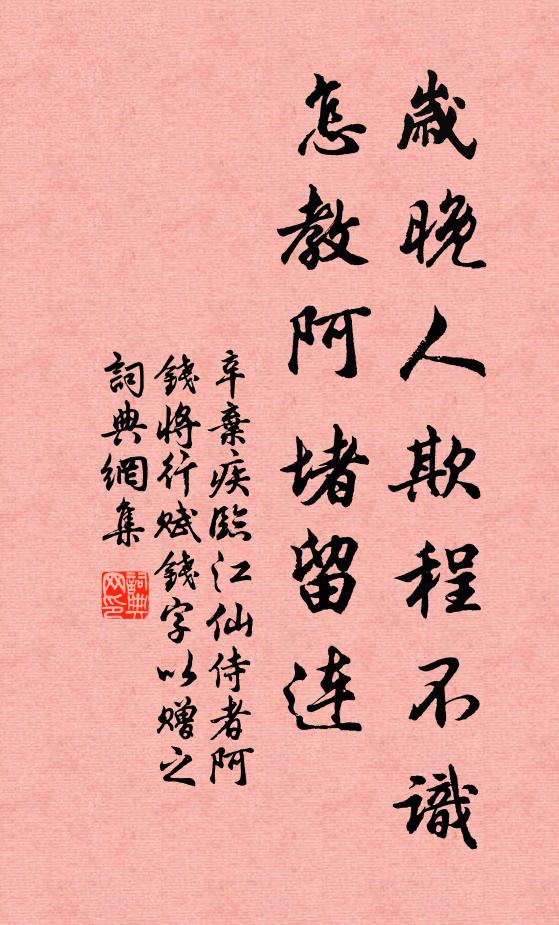 歲晚人欺程不識
怎教阿堵留連
辛棄疾臨江仙侍者阿
錢將行賦錢字以贈之
詞典網集
詞典
网印